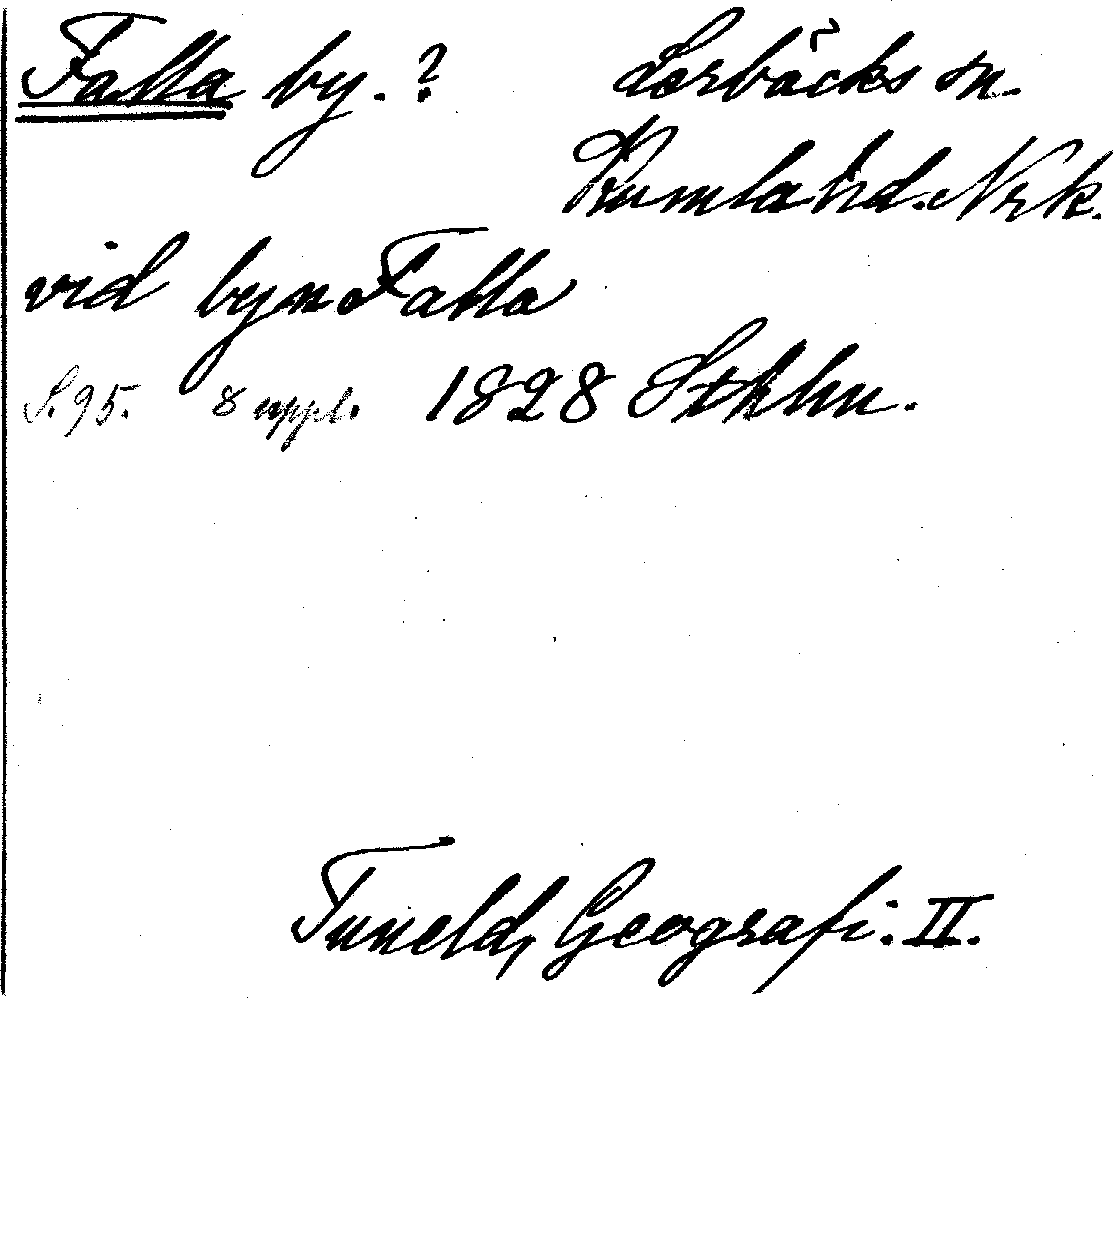 Falla by. ? Lerbäcks sn.
Kumla hd. Nrk.
vid byn Falla
S. 95. 8 uppl. 1828 Sthlm.
Tuneld, Geografi. II.